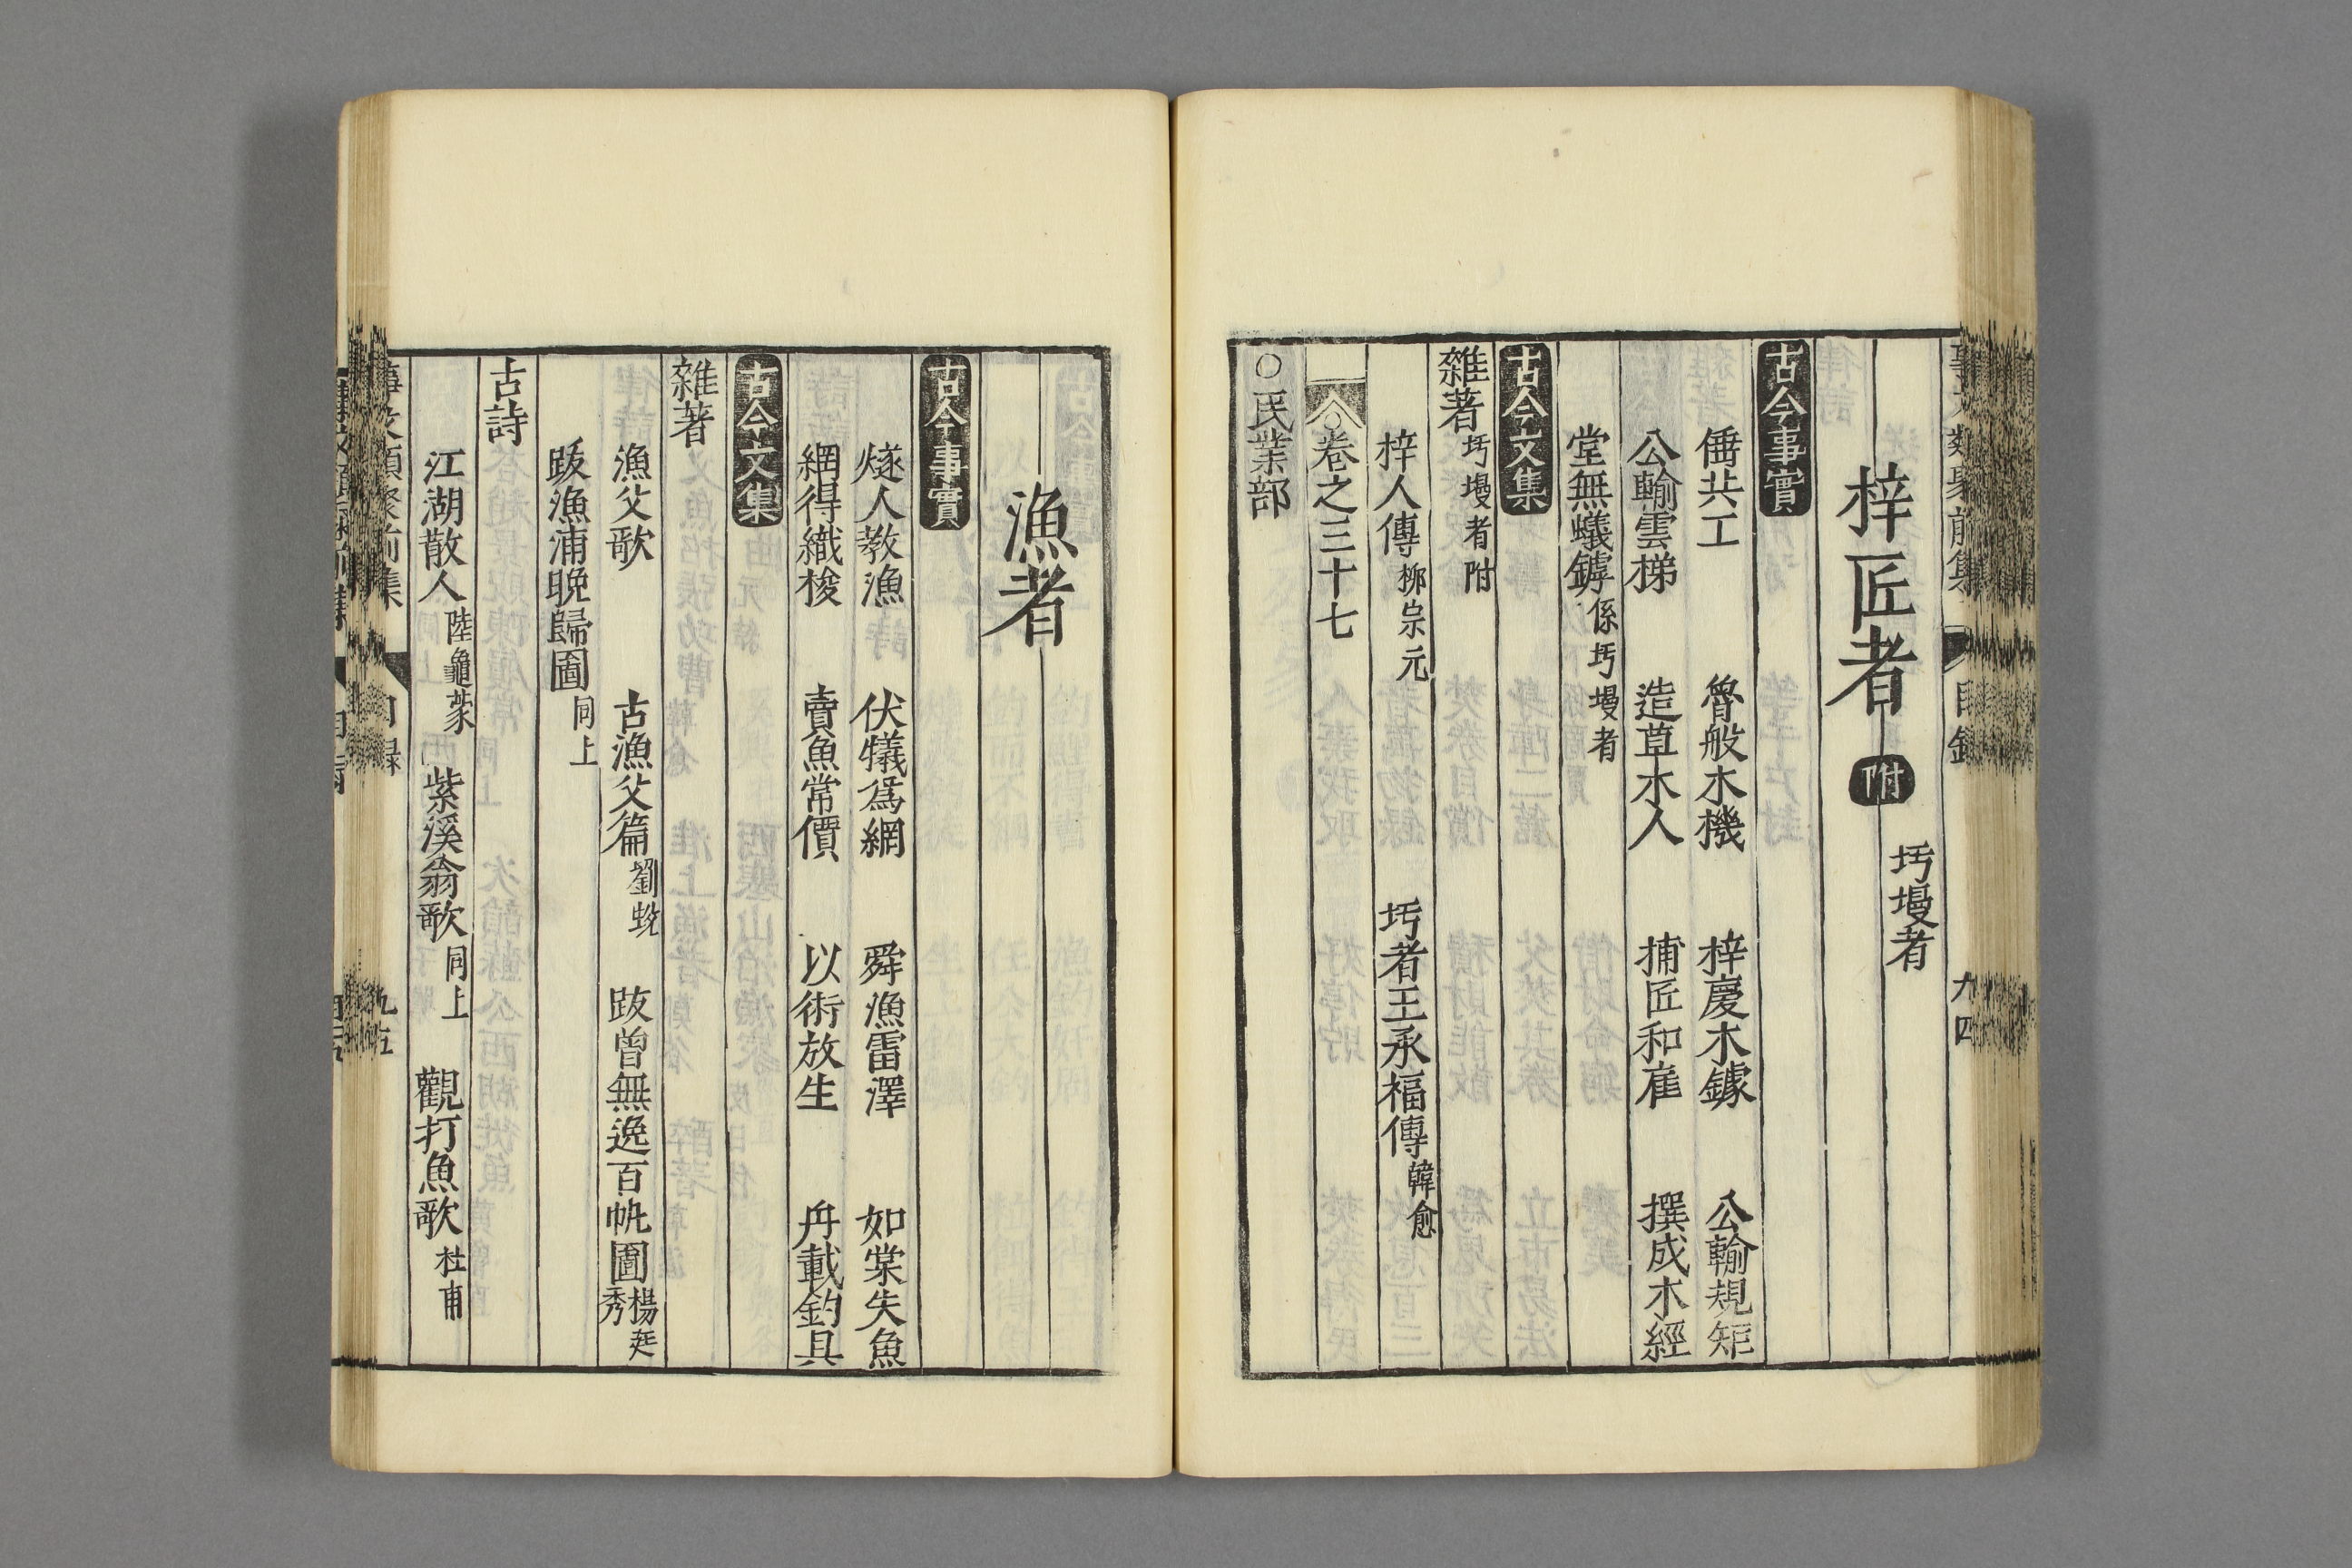 事文類聚前集 目錄 九四
梓匠者 附 圬墁者
古今事實
倕共工 魯般木機 梓慶木鐻 公輸規矩
公輸雲梯 造草木人 捕匠和雇 撰成木經
堂無蟻罅 係圬墁者
古今文集
雜著 圬墁者附
梓人傳 柳宗元 圬者王承福傳 韓愈
卷之三十七
○民業部
漁者
古今事實
燧人教漁 伏犧為網 舜漁雷澤 如棠失魚
網得織梭 賣魚常價 以術放生 舟載釣具
古今文集
雜著
漁父歌 古漁父篇 劉蛻 跋曾無逸百帆圖 楊廷秀
跋漁浦晚歸圖 同上
古詩
江湖散人 陸龜蒙 紫溪翁歌 同上 觀打魚歌 杜甫
事文類聚前集 目錄 九五